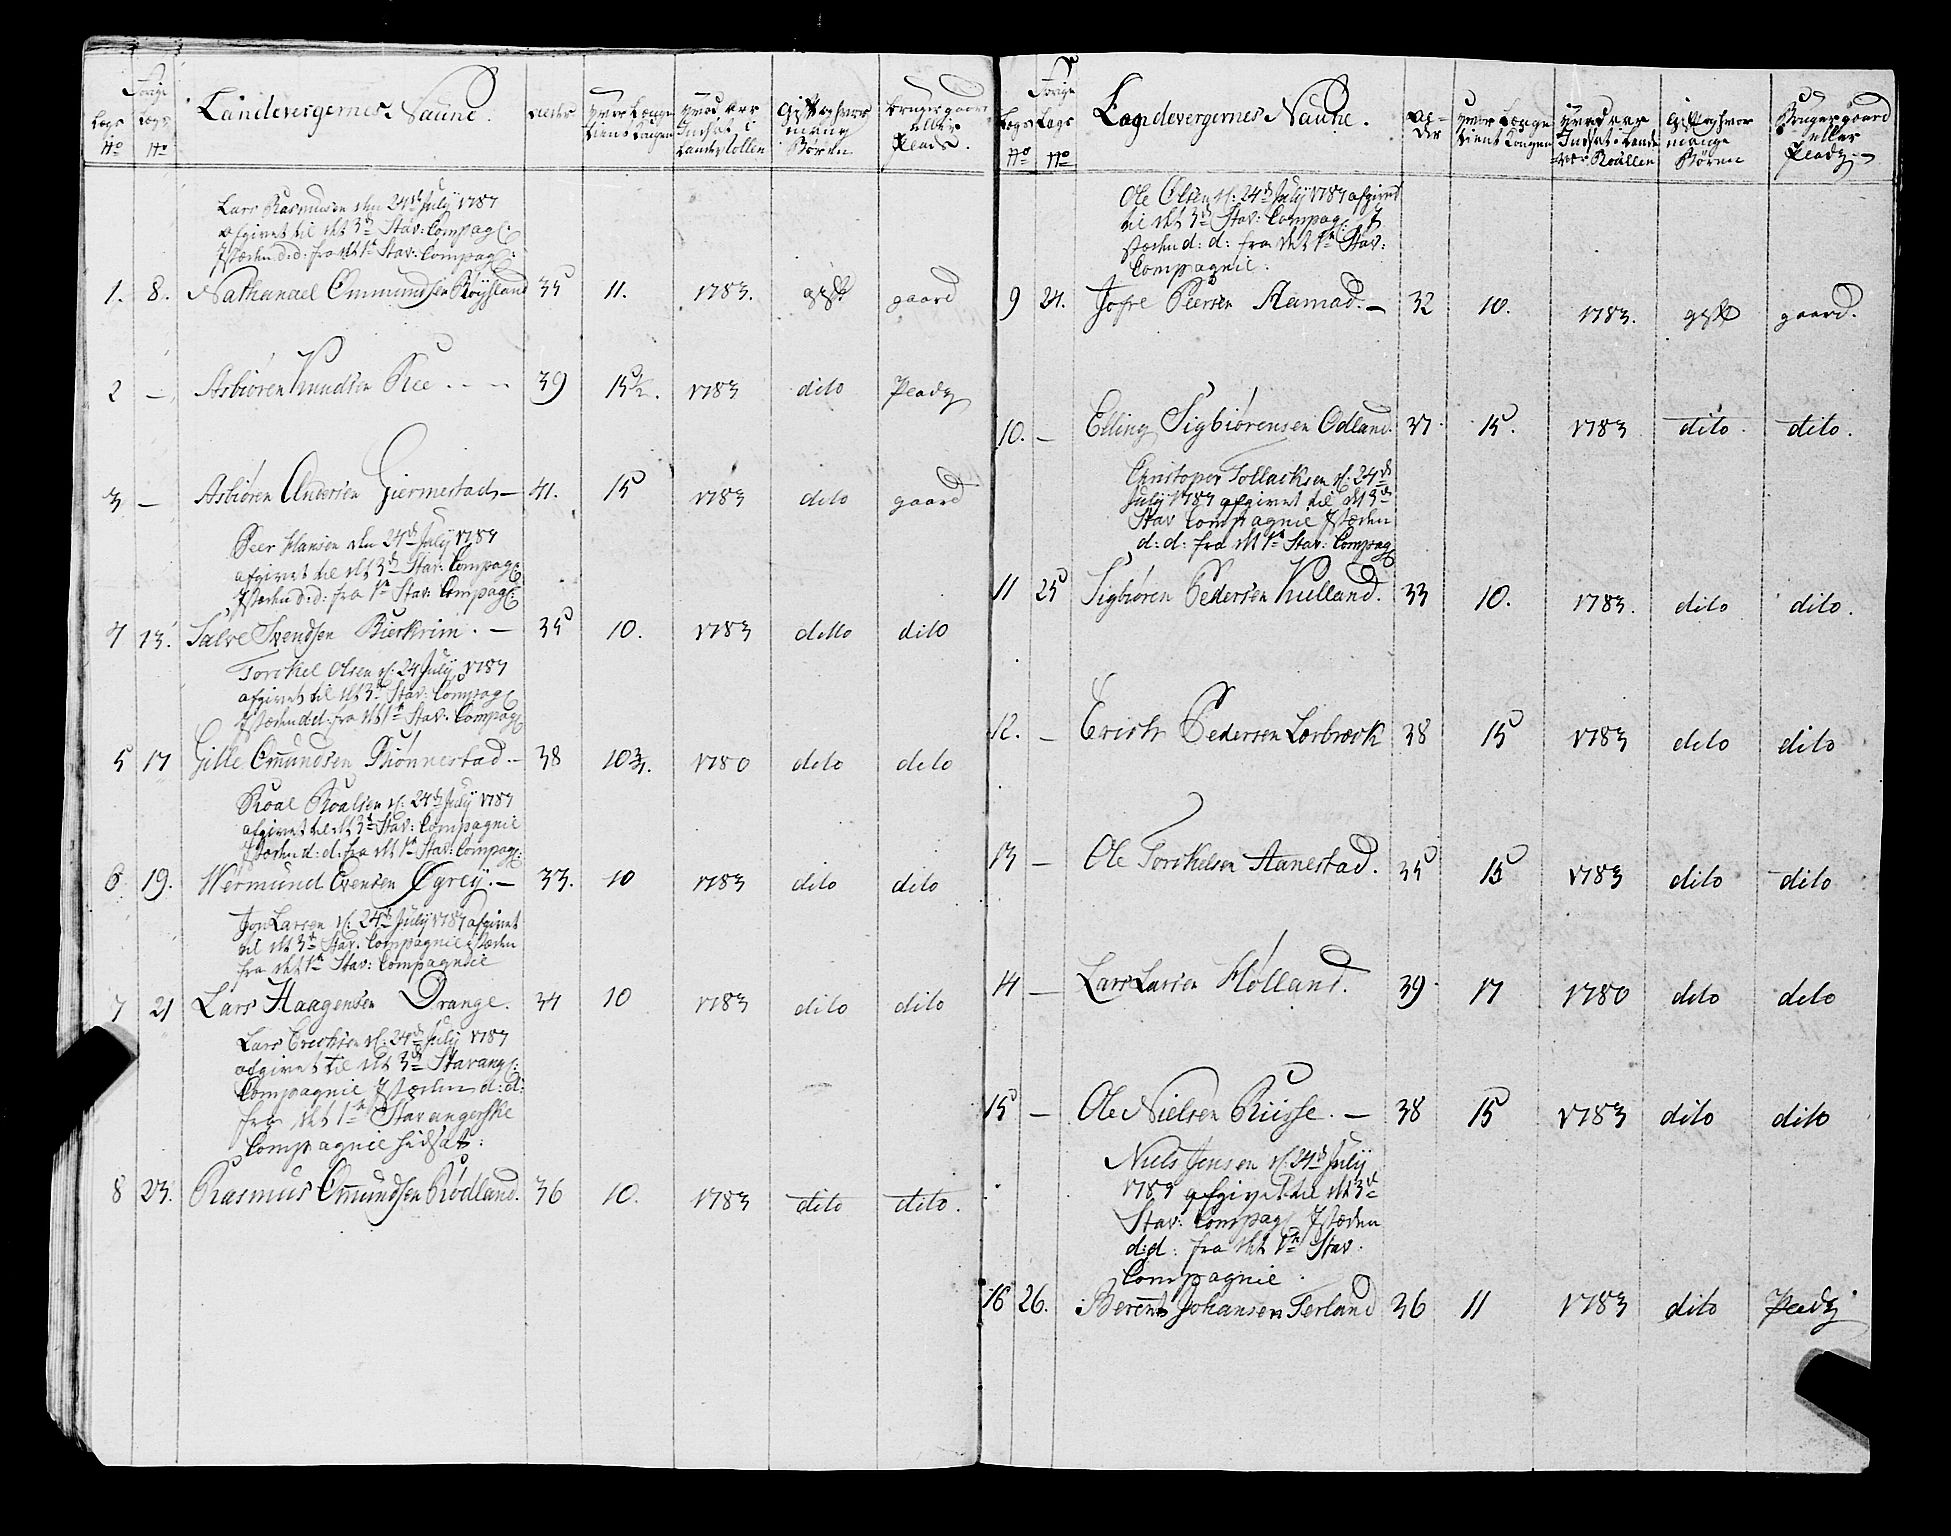 Lægs No | Forige Lægs No | Landevergernes Naune. | Alder | Hvor Længe tient Kongen | Hvad Aar Indsat i Lande Rollen | Gift og hvor mange Børen | Bruger gaard eller Plads.
Lars Rasmusen den 24de July 1787
afgivet til det 3de Stav: Compag:
Jstæden d.d: fra det 1te Stav: Compag:
1. 8. Nathanael Ommundsen Røysland 35 11. 1783. gift gaard
2 — Asbiøren Knudsen Ree 39 15½. 1783 dito Plads
3 — Asbiøren Andersen Giermestad — 41. 15 1783 dito gaard
Peer Hansen den 24de July 1787
afgivet til det 3de Stav: Compag:
Jstæden d.d: fra 1te Stav: Compag:
4 13. Salve Svendsen Bierkrim. — 35 10. 1783 ditto dito
Torckel Olsen d: 24 July 1787
afgivet til det 3de Stav: Compag:
Jstæden d.d: fra det 1te Stav: Compag:
5 17 Gille Omundsen Skønnestad. — 38 10¾. 1780 dito dito
Roal Roalsen d: 24de July 1787
afgivet til det 3de Stav: Compagnie
Jstæden d: d: fra det 1te Stav: Compag:
6 19. Wermund Evensen Øgrey. — 33. 10 1783 dito dito
Jon Larsen d: 24de July 1787 afgivet
til det 3de Stav. Compagnie istæden
fra det 1te Stav: Compagniie
7 21 Lars Haagensen Drange. 34 10 1783 dito dito
Lars Ericksen d: 24de July 1787
afgivet til det 3de Stavang:
Compagnie Jstæden d: d:
fra det 1te Stavangerske
Compagnie hidsat:
8 23. Rasmus Omundsen Rødland. 36 10. 1783 dito dito.
Lægs No | Forige Lægs No | Landevergernes Naune. | Al-der | Hvor Længe tient Kongen | Hvad Aar Indsat i Lande-vær Roullen | Gift og hvor mange Børen | Bruger gaard eller Plads —
Ole Olsen d: 24de July 1787 afgivet
til det 3de Stav: Compag: J
stæden d: d: fra det 1te Stav:
Compagnie.
9 24. Jofre Peersen Aamod. — 32 10. 1783. gift gaard.
10. — Elling Sigbiørensen Odland. 37. 15. 1783 dito dito.
Christoper Tollacksen d: 24de
July 1787 afgivet til det 3de
Stav Compagnie Jstæden
d: d: fra det 1te Stav: Compag
11 25 Sigbiøren Pedersen Huelland. 33 10. 1783. dito dito.
12. — Erich Pedersen Lørbræck 38 15 1783 dito dito
13 — Ole Torckelsen Aanestad. 35 15 1783 dito dito
14 — Lars Larsen Hølland. 39. 17 1780 dito dito
15 — Ole Nielsen Riisse. — 38 15 1783 dito dito
Niels Jensen d: 24de July
1787 afgivet til det 3de
Stav: Compag: Jstæden
d: d: fra det 1te Stav.
Compagnie.
16 26. Berent Johansen Terland 36 11 1783 dito Plads